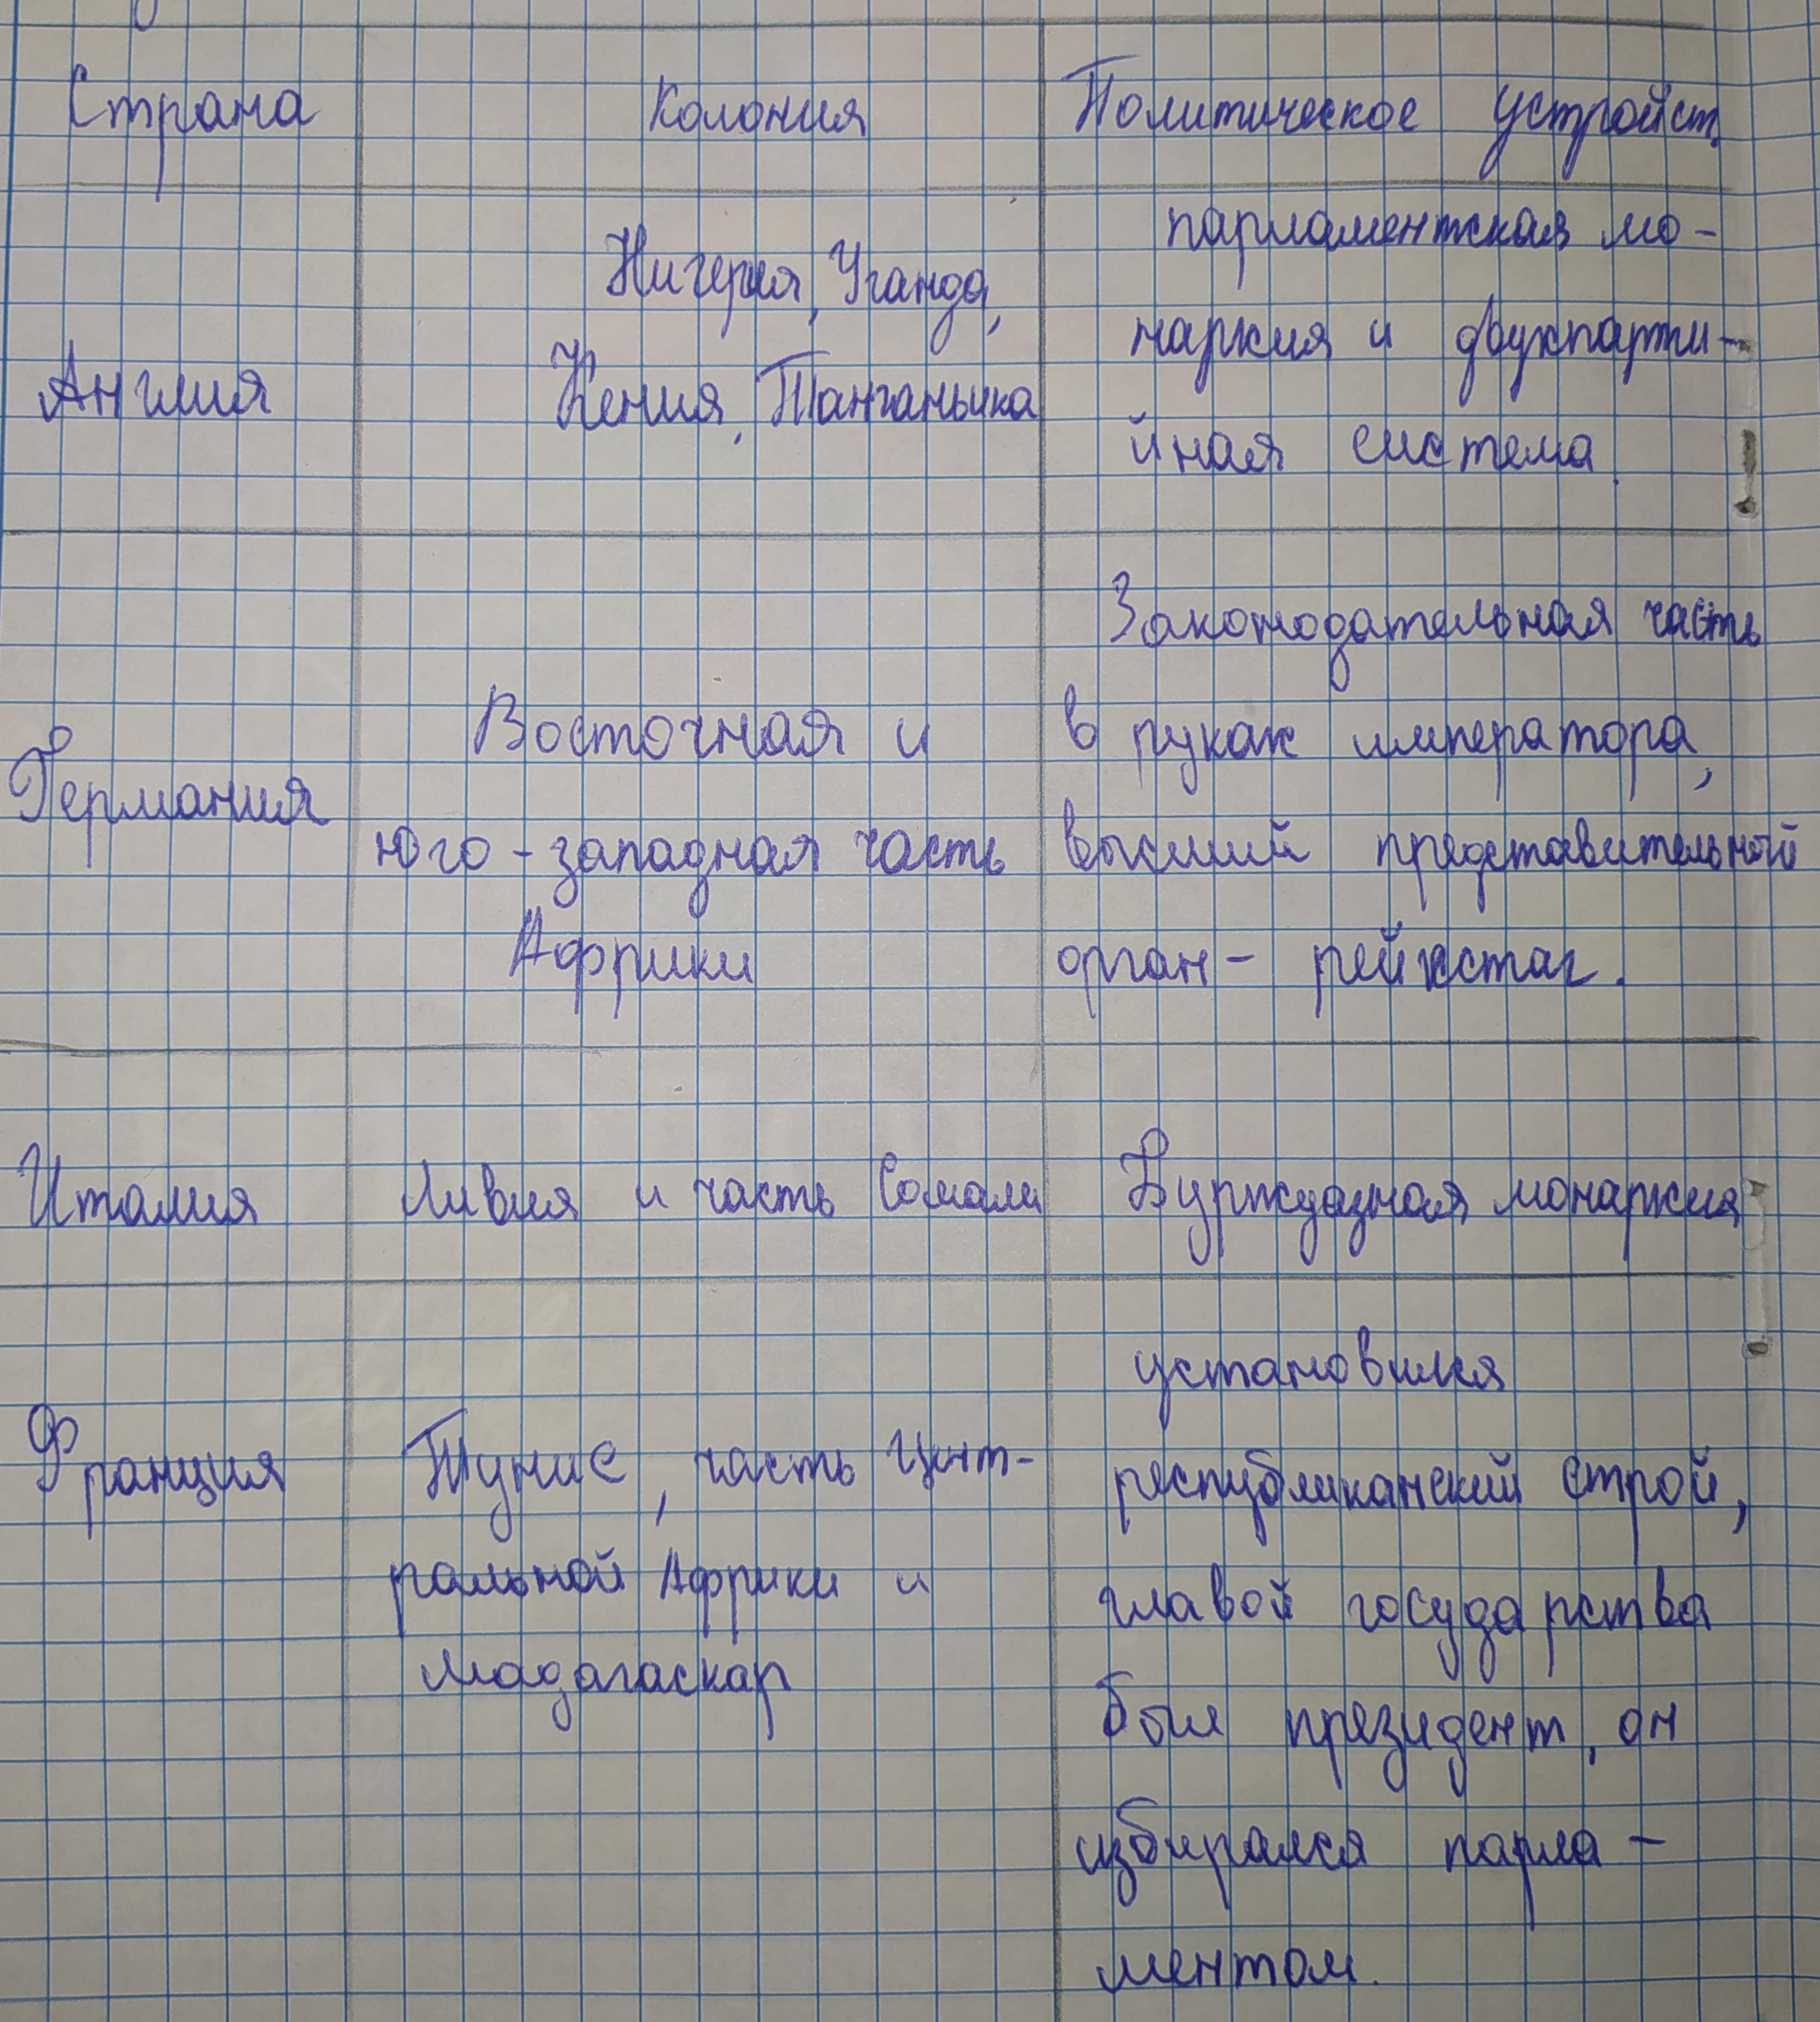 Страна Колония Политическое устройст.
Нигерия, Уганда,
Кения, Танганьика
Англия
парламентская мо-
нархия и двухпарти-
йная система.
Германия
Восточная и
юго-западная часть
Африки
Законодательная часть
в руках императора,
высший представительной
орган - рейхстаг.
Италия Ливия и часть Сомали Буржуазная монархия
Франция
Тунис, часть Цент-
ральной Африки и
Мадагаскар
установился
республиканский строй,
главой государства
был президент, он
избирался парла-
ментом.